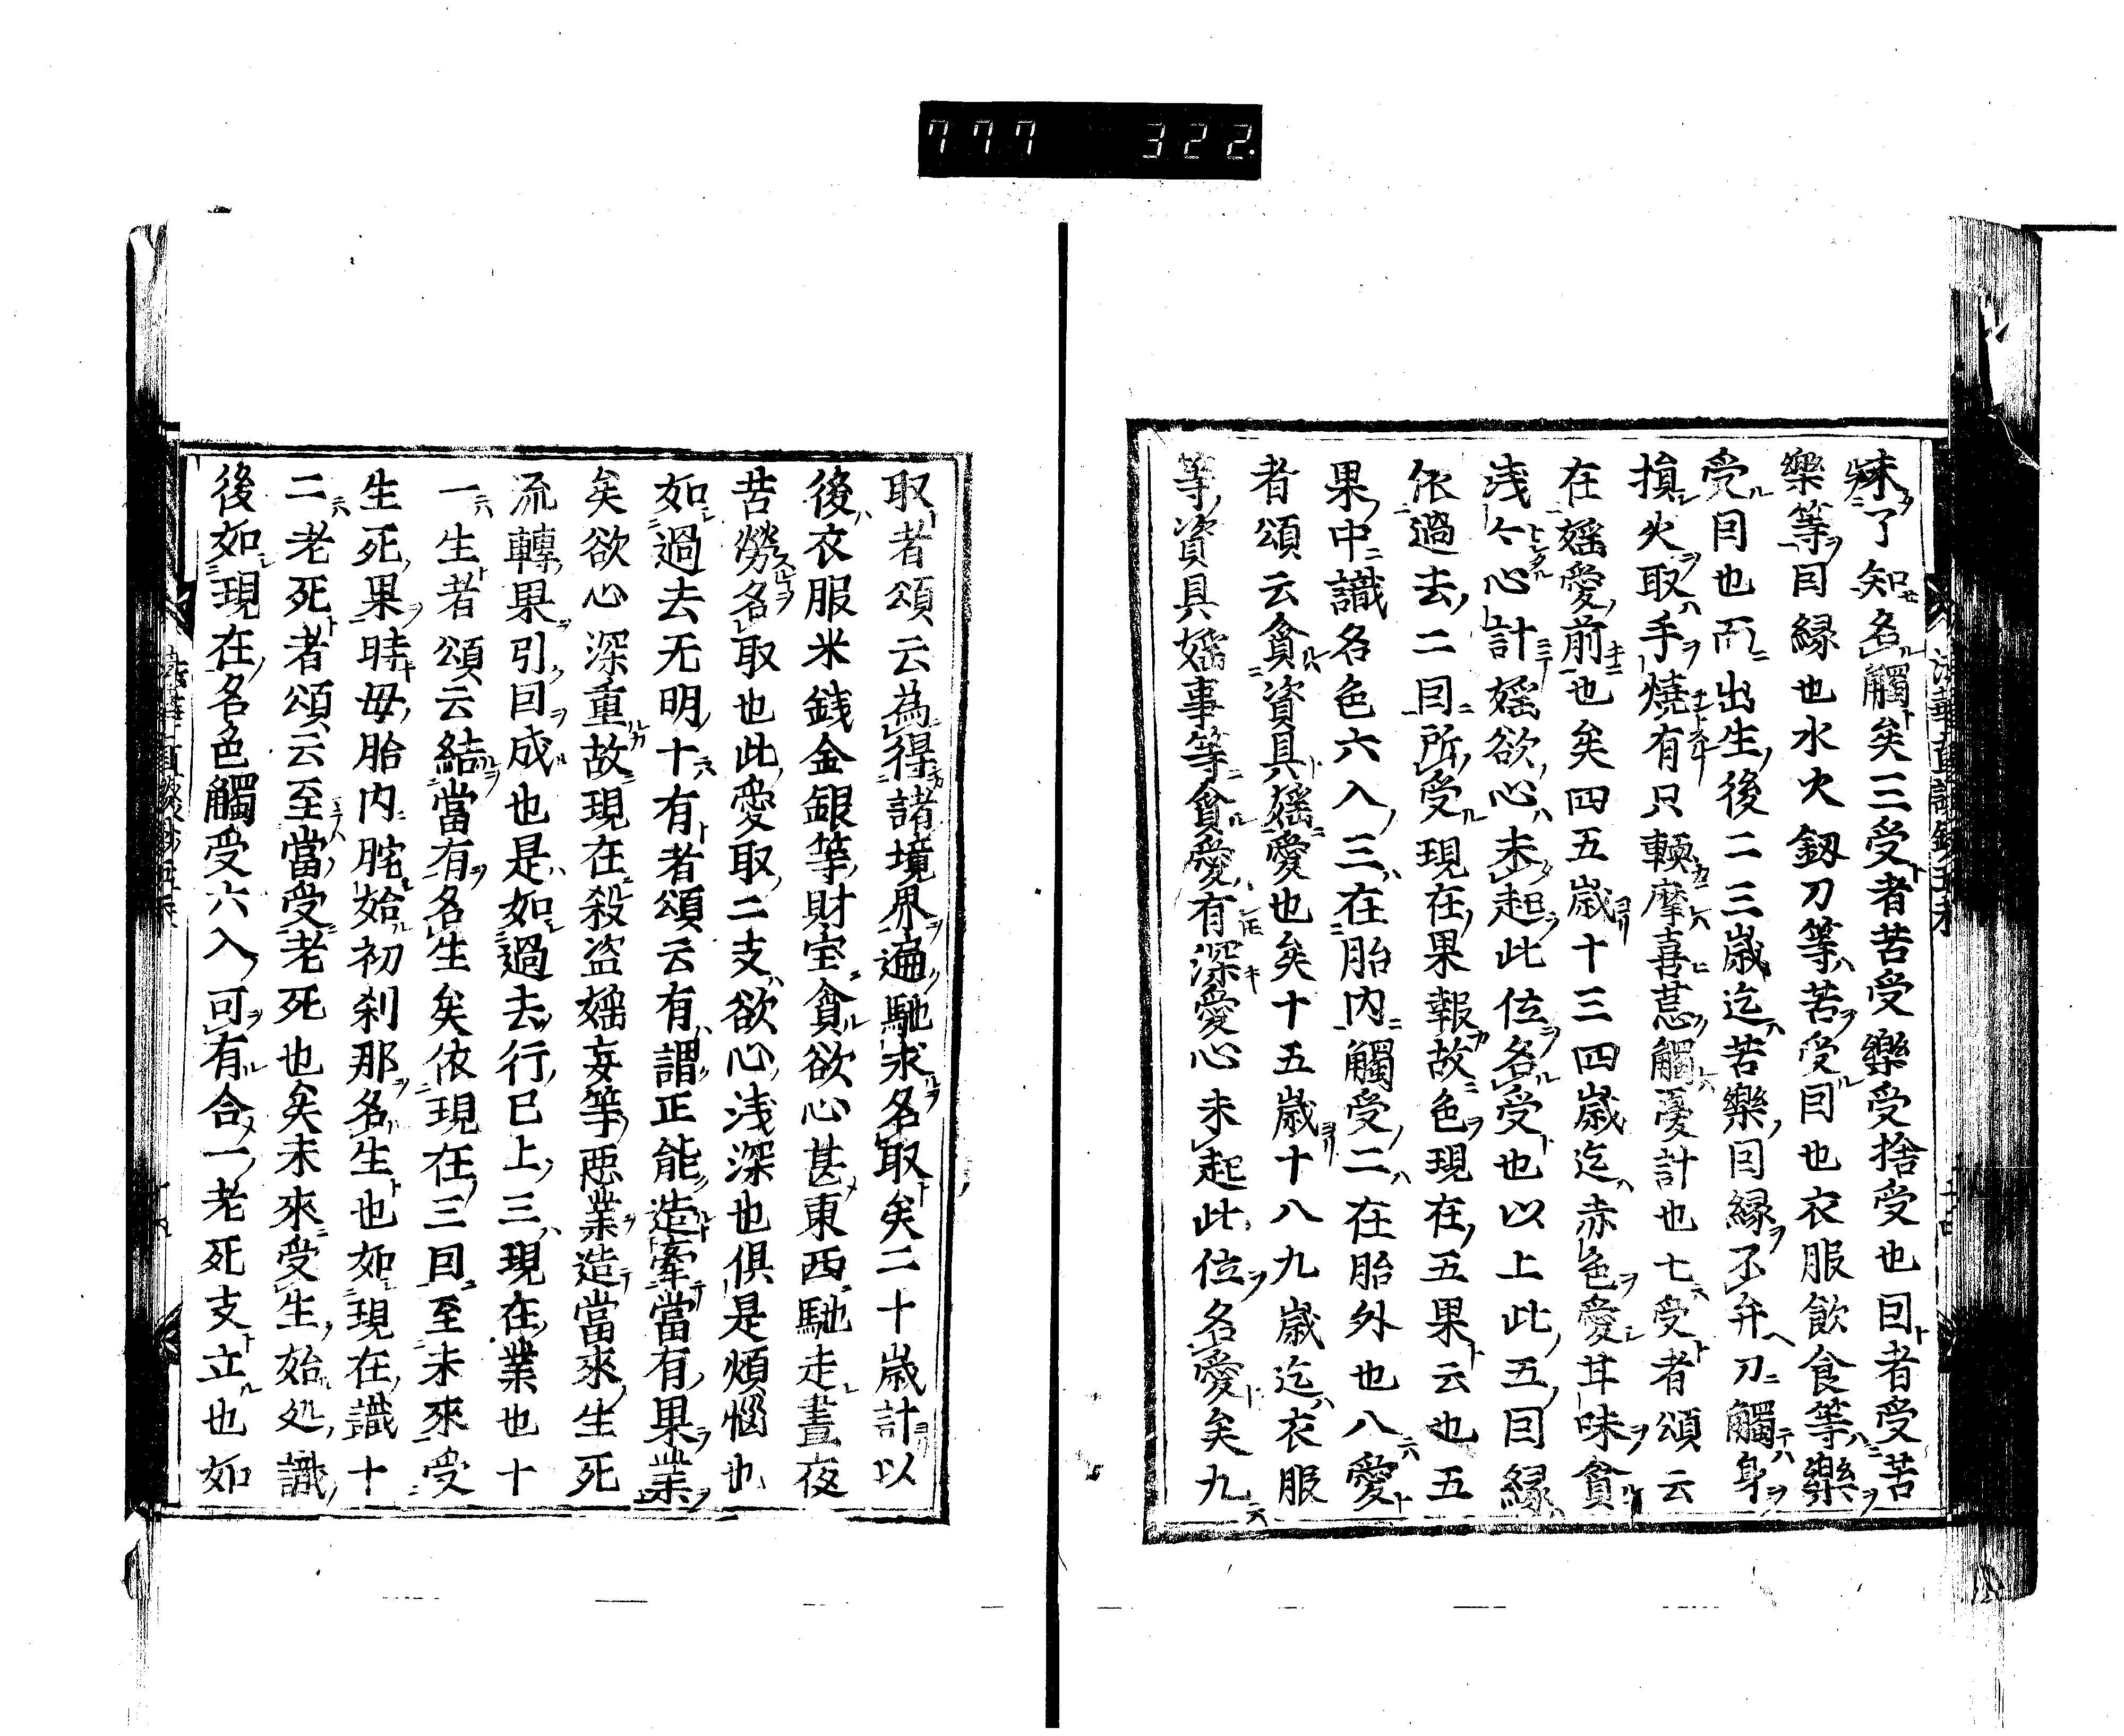 777 322
未了知名觸矣三受者苦受樂受捨受也因者受苦
樂等因縁也水火釼刀等苦受因也衣服飲食等樂
受因也而出生後二三歳迄苦樂因縁不弁刀觸身
損火取手燒有只輭摩喜荒觸憂計也七受者頌云
在婬愛前也矣四五歳十三四歳迄赤色愛甘味貪
浅々心計婬欲心未起此位名受也以上此五因縁
依過去二因所受現在果報故色現在五果云也五
果中識名色六入三在胎内觸受二在胎外也八愛
者頌云貪資具婬愛也矣十五歳十八九歳迄衣服
等資具婬事等貪愛有深愛心未起此位名愛矣九
取者頌云為得諸境界遍馳求名取矣二十歳計以
後衣服米銭金銀等財宝貪欲心甚東西馳走晝夜
苦勞名取也此愛取二支欲心浅深也倶是煩惱也
如過去无明十有者頌云有謂正能造牽當有果業
矣欲心深重故現在殺盗婬妄等悪業造當來生死
流轉果引因成也是如過去行已上三現在業也十
一生者頌云結當有名生矣依現在三因至未來受
生死果時母胎内胎始初刹那名生也如現在識十
二老死者頌云至當受老死也矣未來受生始処識
後如現在名色觸受六入可有合一老死支立也如